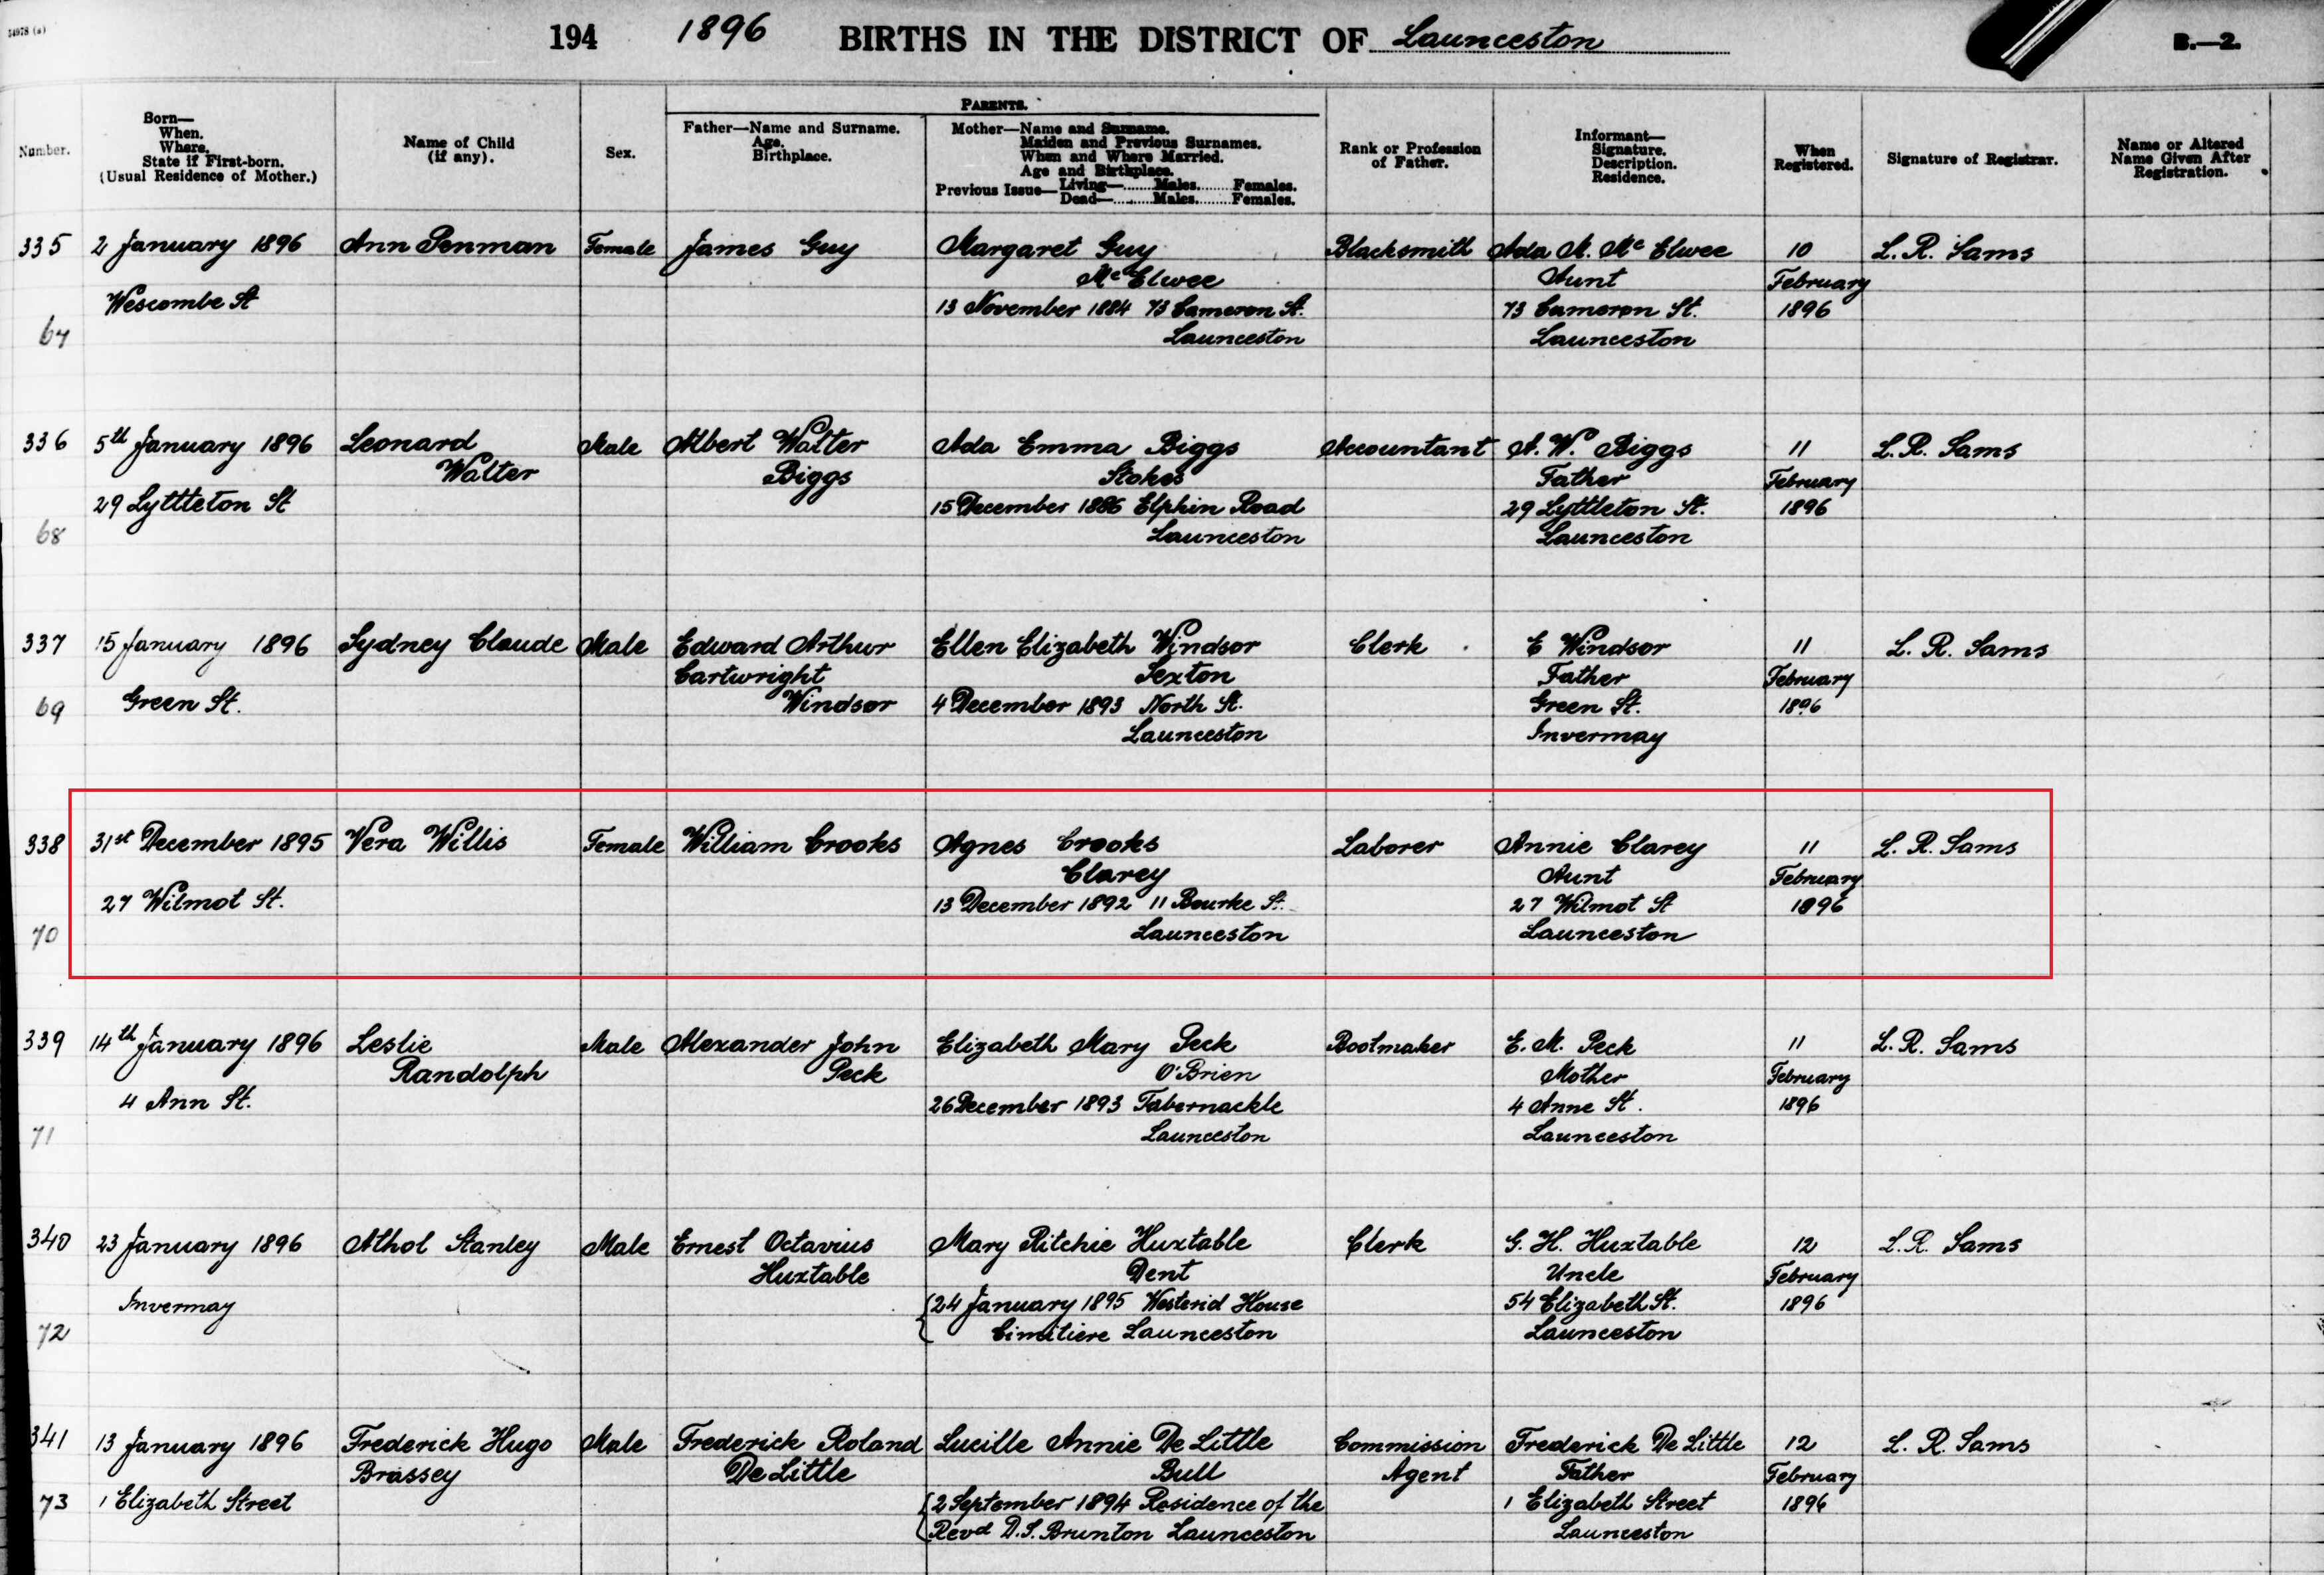 54978 (a)
194 1896 BIRTHS IN THE DISTRICT OF Launceston B.—2.
Number.
Born—
When.
Where.
State if First-born.
(Usual Residence of Mother.)
Name of Child
(if any).
Sex.
PARENTS.
Father—Name and Surname.
Age.
Birthplace.
Mother—Name and Surname.
Maiden and Previous Surnames.
When and Where Married.
Age and Birthplace.
Previous Issue— Living—......Males.......Females.
Dead—.......Males.......Females.
Rank or Profession
of Father.
Informant—
Signature.
Description.
Residence.
When
Registered.
Signature of Registrar.
Name or Altered
Name Given After
Registration.
335 2 January 1896 Ann Penman Female James Guy Margaret Guy Blacksmith Ada M. McElwee 10 L. R. Sams
McElwee Aunt February
Wescombe St 13 November 1884 73 Cameron St. 73 Cameron St. 1896
67 Launceston Launceston
336 5th January 1896 Leonard Male Albert Walter Ada Emma Biggs Accountant A. W. Biggs 11 L. R. Sams
Walter Biggs Stokes Father February
29 Lyttleton St 15 December 1886 Elphin Road 29 Lyttleton St. 1896
68 Launceston Launceston
337 15 January 1896 Sydney Claude Male Edward Arthur Ellen Elizabeth Windsor Clerk E Windsor 11 L. R. Sams
Cartwright Sexton Father February
69 Green St. Windsor 4 December 1893 North St. Green St. 1896
Launceston Invermay
338 31st December 1895 Vera Willis Female William Crooks Agnes Crooks Laborer Annie Clarey 11 L. R. Sams
Clarey Aunt February
27 Wilmot St. 13 December 1892 11 Bourke St. 27 Wilmot St 1896
70 Launceston Launceston
339 14th January 1896 Leslie Male Alexander John Elizabeth Mary Peck Bootmaker E. M. Peck 11 L. R. Sams
Randolph Peck O'Brien Mother February
4 Ann St. 26 December 1893 Tabernackle 4 Anne St. 1896
71 Launceston Launceston
340 23 January 1896 Athol Stanley Male Ernest Octavius Mary Ritchie Huxtable Clerk G. H. Huxtable 12 L. R. Sams
Huxtable Dent Uncle February
Invermay 24 January 1895 Westerid House 54 Elizabeth St. 1896
72 Cimitiere Launceston Launceston
341 13 January 1896 Frederick Hugo Male Frederick Roland Lucille Annie De Little Commission Frederick De Little 12 L. R. Sams
Brassey De Little Bull Agent Father February
73 1 Elizabeth Street 2 September 1894 Residence of the 1 Elizabeth Street 1896
Revd D. S. Brunton Launceston Launceston